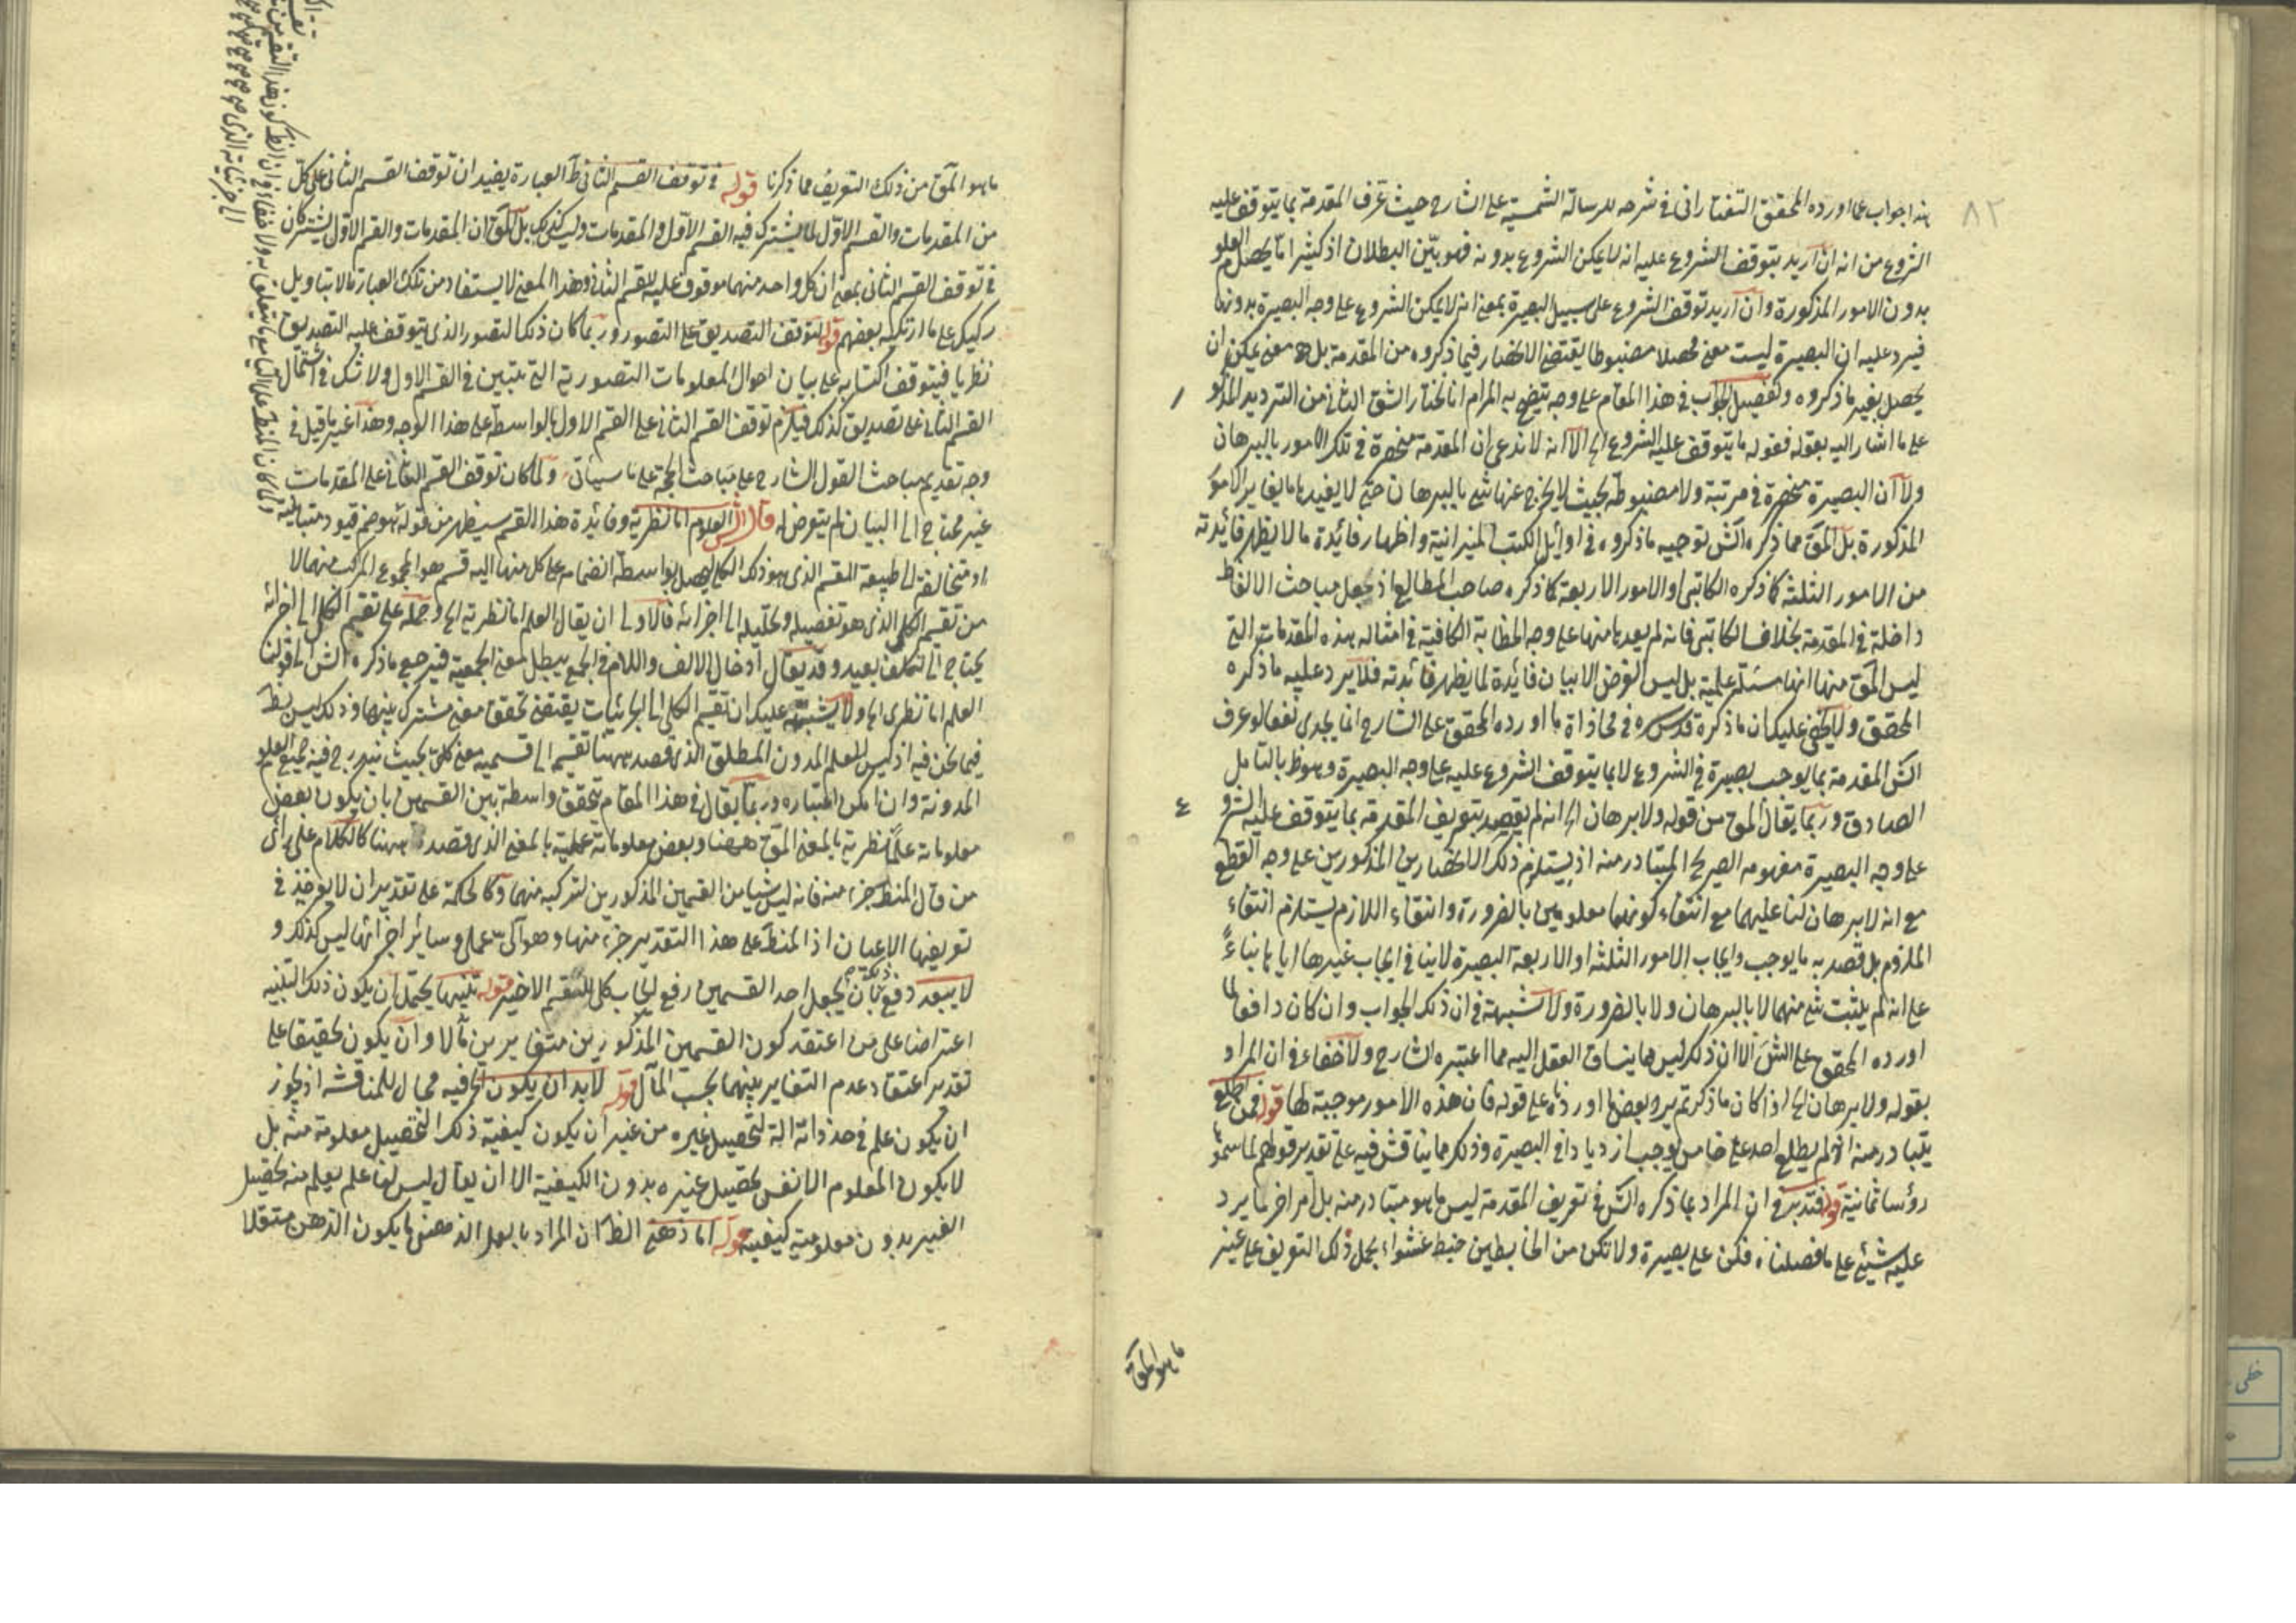 ٨٢
هذا جواب عما اورده المحقق التفتازانى فى شرحه للرسالة الشمسية على الشارح حيث عرف المقدمة بما يتوقف عليه
الشروع من انه ان اريد بتوقف الشروع عليه انه لا يمكن الشروع بدونه فهو بيّن البطلان اذ كثيرا ما يحصل العلوم
بدون الامور المذكورة وان اريد توقف الشروع على سبيل البصيرة بمعنى انه لا يمكن الشروع على وجه البصيرة بدونها
فيرد عليه ان البصيرة ليست معنى محصلا مضبوطا يقتضى الانحصار فيما ذكروه من المقدمة بل هو معنى يمكن ان
يحصل بغير ما ذكروه وتفصيل الجواب فى هذا المقام على وجه يتضح به المرام انا نختار الشق الثانى من الترديد المذكور
على ما اشار اليه بقوله فقوله ما يتوقف عليه الشروع الخ الا انه لا ندعى ان المقدمة منحصرة فى تلك الامور بالبرهان
ولا ان البصيرة منحصرة فى مرتبة ولا مضبوطة بحيث لا يخرج عنها شئ بالبرهان حتى لا يفيدها ما يغاير الامور
المذكورة بل المق مما ذكره الش توجيه ما ذكروه فى اوائل الكتب الميزانية واظهار فائدة ما لا يظهر فائدته
من الامور الثلثة كما ذكره الكاتبى او الامور الاربعة كما ذكره صاحب المطالع اذ جعل مباحث الالفاظ
داخلة فى المقدمة بخلاف الكاتبى فانه لم يعدها منها على وجه الخطابة الكافية فى امثاله هذه المقدمات التى
ليس المق منها انها مسئلة علمية بل ليس الغرض الا بيان فائدة لما يظهر فائدته فلا يرد عليه ما ذكره
المحقق ولا يخفى عليك ان ما ذكره قدس سره فى محاذاة ما اورده المحقق على الشارح انما يجدى نفعا لو عرف
الش المقدمة بما يوجب بصيرة فى الشروع لا بما يتوقف الشروع عليه على وجه البصيرة وهو ظ بالتامل
الصادق وربما يقال المق من قوله ولا برهان الخ انه لم يقصد بتعريف المقدمة بما يتوقف عليه الشروع
على وجه البصيرة مفهومه الصريح المتبادر منه اذ يستلزم ذلك الانحصارين المذكورين على وجه القطع
مع انه لا برهان لنا عليهما مع انتفاء كونهما معلومين بالضرورة وانتفاء اللازم يستلزم انتفاء
الملزوم بل قصد به ما يوجب وايجاب الامور الثلثة او الاربعة البصيرة لا ينافى ايجاب غيرها اياها بناءً
على انه لم يثبت شئ منهما لا بالبرهان ولا بالضرورة ولا شبهة فى ان ذلك الجواب وان كان دافعا لما
اورده المحقق على الش الا ان ذلك ليس مما ينساق العقل اليه مما اعتبره الشارح ولا خفاء فى ان المراد
بقوله ولا برهان الخ اذا كان ما ذكر تم يرد بعض ما اورده على قوله فان هذه الامور موجبة لها قوله فمن اطلع
يتبادر منه انه لم يطلع احد على خامس يوجب ازدياد فى البصيرة وذلك مما يناقش فيه على تقدير قولهم لما سموه
رؤسا ثمانية قوله فتدبر فى ان المراد بما ذكره الش فى تعريف المقدمة ليس ما هو متبادر منه بل امر اخر ما يرد
عليه شئ على ما فصلناه فكن على بصيرة ولا تكن من الخابطين خبط عشواء بحمل ذلك التعريف على غير
ما هو المق
ما هو المق من ذلك التعريف مما ذكرنا قوله فى توقف القسم الثانى ظ العبارة يفيد ان توقف القسم الثانى على كل
من المقدمات والقسم الاول مما يشترك فيه القسم الاول والمقدمات وليس كذلك بل المق ان المقدمات والقسم الاول يشتركان
فى توقف القسم الثانى بمعنى ان كل واحد منهما موقوف عليه للقسم الثانى وهذا المعنى لا يستفاد من تلك العبارة الا بتاويل
ركيك على ما ارتكبه بعضهم قوله لتوقف التصديق على التصور وربما كان ذلك التصور الذى يتوقف عليه التصديق
نظريا فيتوقف اكتسابه على بيان احوال المعلومات التصورية التى تتبين فى القسم الاول ولا شك فى اشتمال
القسم الثانى على تصديق كذلك فيلزم توقف القسم الثانى على القسم الاول بالواسطة على هذا الوجه وهذا غير ما قيل فى
وجه تقديم مباحث القول الشارح على مباحث الحجة على ما سيأتى ولما كان توقف القسم الثانى على المقدمات
غير محتاج الى البيان لم يتعرض له قال الش العلوم اما نظرية وفائدة هذا القسم سيظهر من قوله هو ضم قيود متباينة
او متخالفة الى طبيعة المقسم الذى هو ذلك الكلى ليحصل بواسطة انضمامه على كل منها اليه قسم هو المجموع المركب منهما لا
من تقسيم الكل الذى هو تفصيله وتحليله الى اجزائه فالاولى ان يقال العلم اما نظرية الخ وحمله على تقسيم الكل الى اجزائه
يحتاج الى تكلف بعيد وقد يقال ادخال الالف واللام فى الجمع يبطل معنى الجمعية فيرجع ما ذكره الش الى قولنا
العلم اما نظرى الخ ولا يشتبه عليك ان تقسيم الكلى الى الجزئيات يقتضى تحقق معنى مشترك بينهما وذلك ليس بظ
فيما نحن فيه اذ ليس للعلم المدون المطلق الذى قصد ههنا تقسيمه الى قسميه معنى كلى بحيث يندرج فيه جميع العلوم
المدونة وان امكن اعتباره وربما يقال فى هذا المقام يتحقق واسطة بين القسمين بان يكون بعض
معلوماته علما نظرية بالمعنى المق ههنا وبعض معلوماته عملية بالمعنى الذى قصد ههنا كالكلام على رأى
من قال المنطق جزء منه فانه ليس شيئا من القسمين المذكورين لتركبه منهما وكالحكمة على تقدير ان لا يؤخذ فى
تعريفها الاعيان اذ المنطق على هذا التقدير جزء منها وهو آلى عملى وسائر اجزائها ليس كذلك و
لا يبعد دفع ذلك بان يجعل احد القسمين رفع ايجاب كل للقسم الاخير قوله تنبيها يحتمل ان يكون ذلك التنبيه
اعتراضا على من اعتقد كون القسمين المذكورين متغايرين مآلا وان يكون تحقيقا على
تقدير اعتقاد عدم التغاير بينهما بحسب المآل قوله لا بد ان يكون الخ فيه مجال للمناقشة اذ يجوز
ان يكون علم فى حد ذاته آلة لتحصيل غيره من غير ان يكون كيفية ذلك التحصيل معلومة منه بل
لا يكون المعلوم الا نفس تحصيل غيره بدون الكيفية الا ان يقال ليس لنا علم يعلم منه تحصيل
الغير بدون معلومية كيفيته قوله اما ذهنى الظ ان المراد بالعمل الذهنى ما يكون الذهن مستقلا